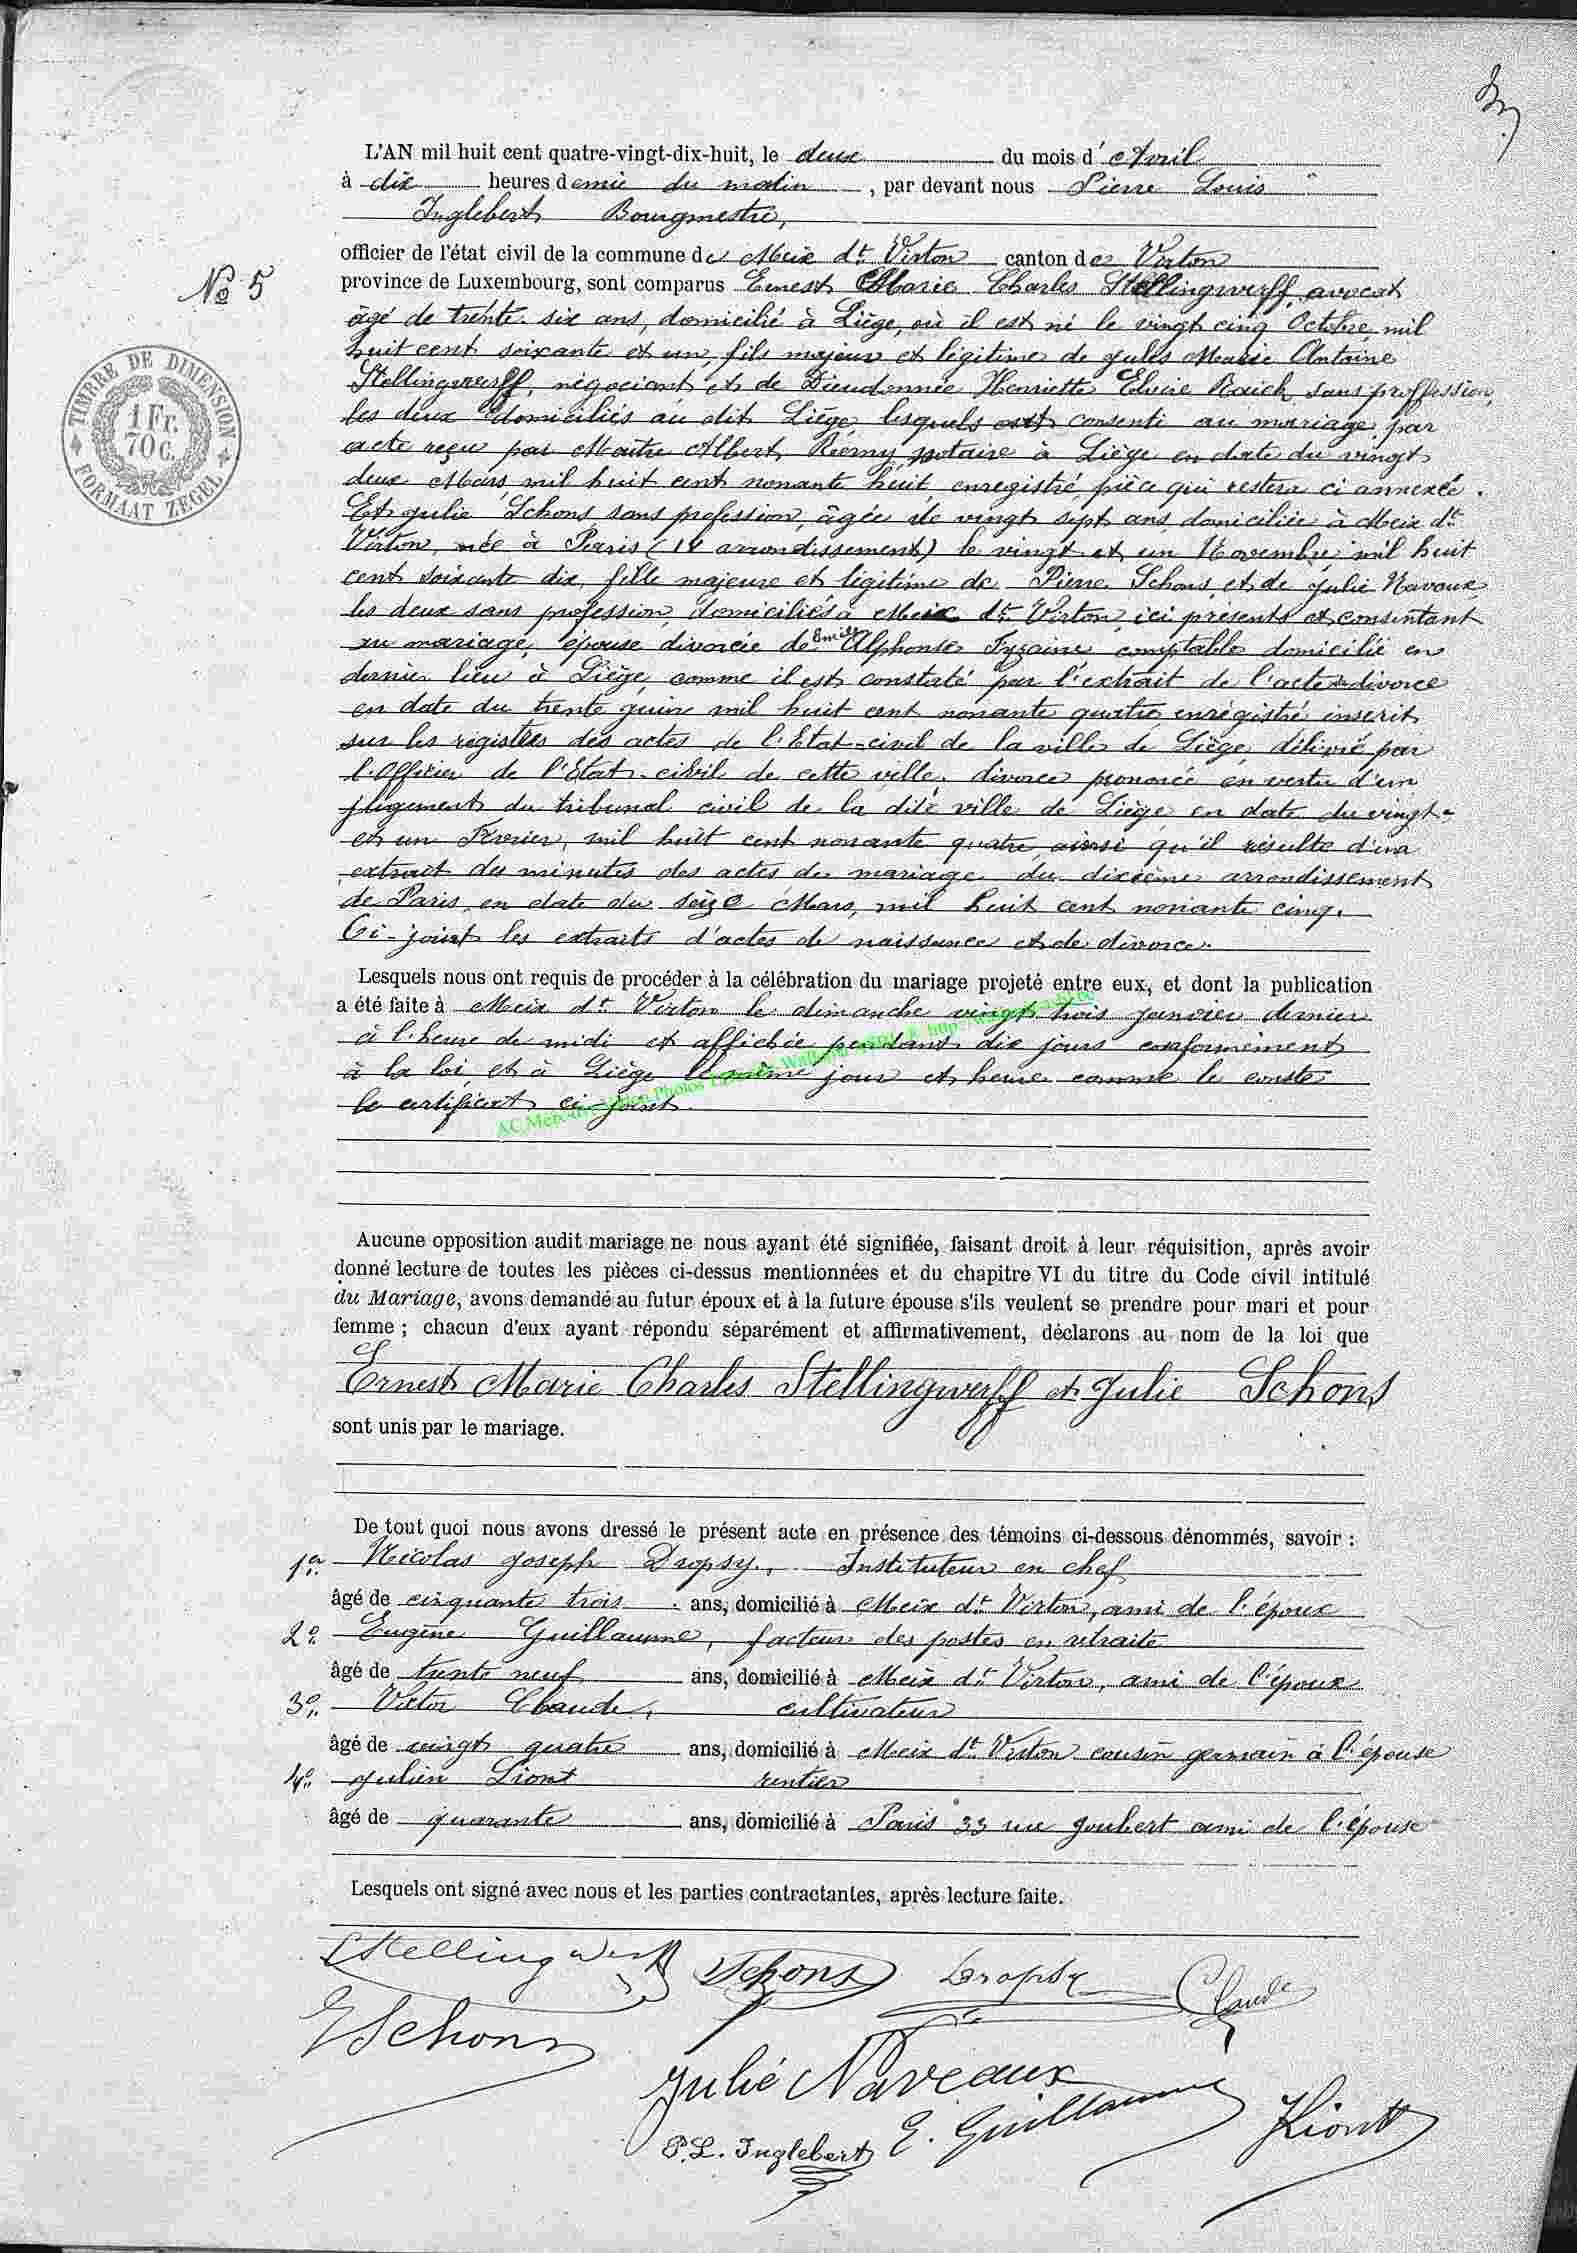 L'AN mil huit cent quatre-vingt-dix-huit, le deux du mois d'Avril
à dix heures demie du matin, par devant nous Pierre Louis
Inglebert Bourgmestre,
officier de l'état civil de la commune de Meix dt Virton canton de Virton
N° 5
province de Luxembourg, sont comparus Ernest Marie Charles Stellingwerff, avocat
âgé de trente-six ans, domicilié à Liège, où il est né le vingt cinq Octobre mil
huit cent soixante et un, fils majeur et légitime de Jules Marie Antoine
Stellingwerff, négociant et de Dieudonnée Henriette Elvire Raick, sans proffession,
les deux domiciliés au dit Liège, lesquels ont consenti au mariage par
acte reçu par Maître Albert Remy notaire à Liège en date du vingt
deux Mars mil huit cent nonante huit, enregistré, pièce qui restera ci annexée.
Et Julie Schons sans profession, âgée de vingt sept ans, domiciliée à Meix dt
Virton, née à Paris ( arrondissement) le vingt et un Novembre mil huit
cent soixante dix, fille majeure et légitime de Pierre Schons et de Julie
les deux sans profession, domiciliés à Meix dt Virton, ici présents et consentant
au mariage, épouse divorcée de Emile Alphonse comptable domicilié en
dernier lieu à Liège, comme il est constaté par l'extrait de l'acte de divorce
en date du trente juin mil huit cent nonante quatre, enrégistré inscrit
sur les régistres des actes de l'Etat-civil de la ville de Liège, délivré par
l'Officier de l'Etat-civil de cette ville, divorce prononcé en vertu d'un
jugement du tribunal civil de la dite ville de Liège en date du vingt-
et un Février, mil huit cent nonante quatre, ainsi qu'il résulte d'un
extrait des minutes des actes de mariage du dixième arrondissement
de Paris, en date du seize Mars, mil huit cent nonante cinq.
Ci-joint les extraits d'actes de naissance et de divorce.
Lesquels nous ont requis de procéder à la célébration du mariage projeté entre eux, et dont la publication
a été faite à Meix dt Virton le dimanche vingt trois janvier dernier
à l'heure de midi et affichée pendant dix jours conformément
à la loi, et à Liège le même jour et heure comme le conste
le certificat ci-joint.
Aucune opposition audit mariage ne nous ayant été signifiée, faisant droit à leur réquisition, après avoir
donné lecture de toutes les pièces ci-dessus mentionnées et du chapitre VI du titre du Code civil intitulé
du Mariage, avons demandé au futur époux et à la future épouse s'ils veulent se prendre pour mari et pour
femme ; chacun d'eux ayant répondu séparément et affirmativement, déclarons au nom de la loi que
Ernest Marie Charles Stellingwerff et Julie Schons
sont unis par le mariage.
De tout quoi nous avons dressé le présent acte en présence des témoins ci-dessous dénommés, savoir :
1° Nicolas Joseph Dropsy, Instituteur en chef
âgé de cinquante trois ans, domicilié à Meix dt Virton, ami de l'époux
2° Eugène Guillaume, facteur des postes en retraite
âgé de trente neuf ans, domicilié à Meix dt Virton, ami de l'époux
3° Victor Claude, cultivateur
âgé de vingt quatre ans, domicilié à Meix dt Virton cousin germain à l'épouse
4° Julien Liont rentier
âgé de quarante ans, domicilié à Paris 33 rue Joubert ami de l'épouse
Lesquels ont signé avec nous et les parties contractantes, après lecture faite.
EStellingwerff Schons Dropsy Claude
Schons
Julie Naveaux
P.L. Inglebert E. Guillaume JLiont
TIMBRE DE DIMENSION
1 Fr.
70 C.
FORMAAT ZEGEL